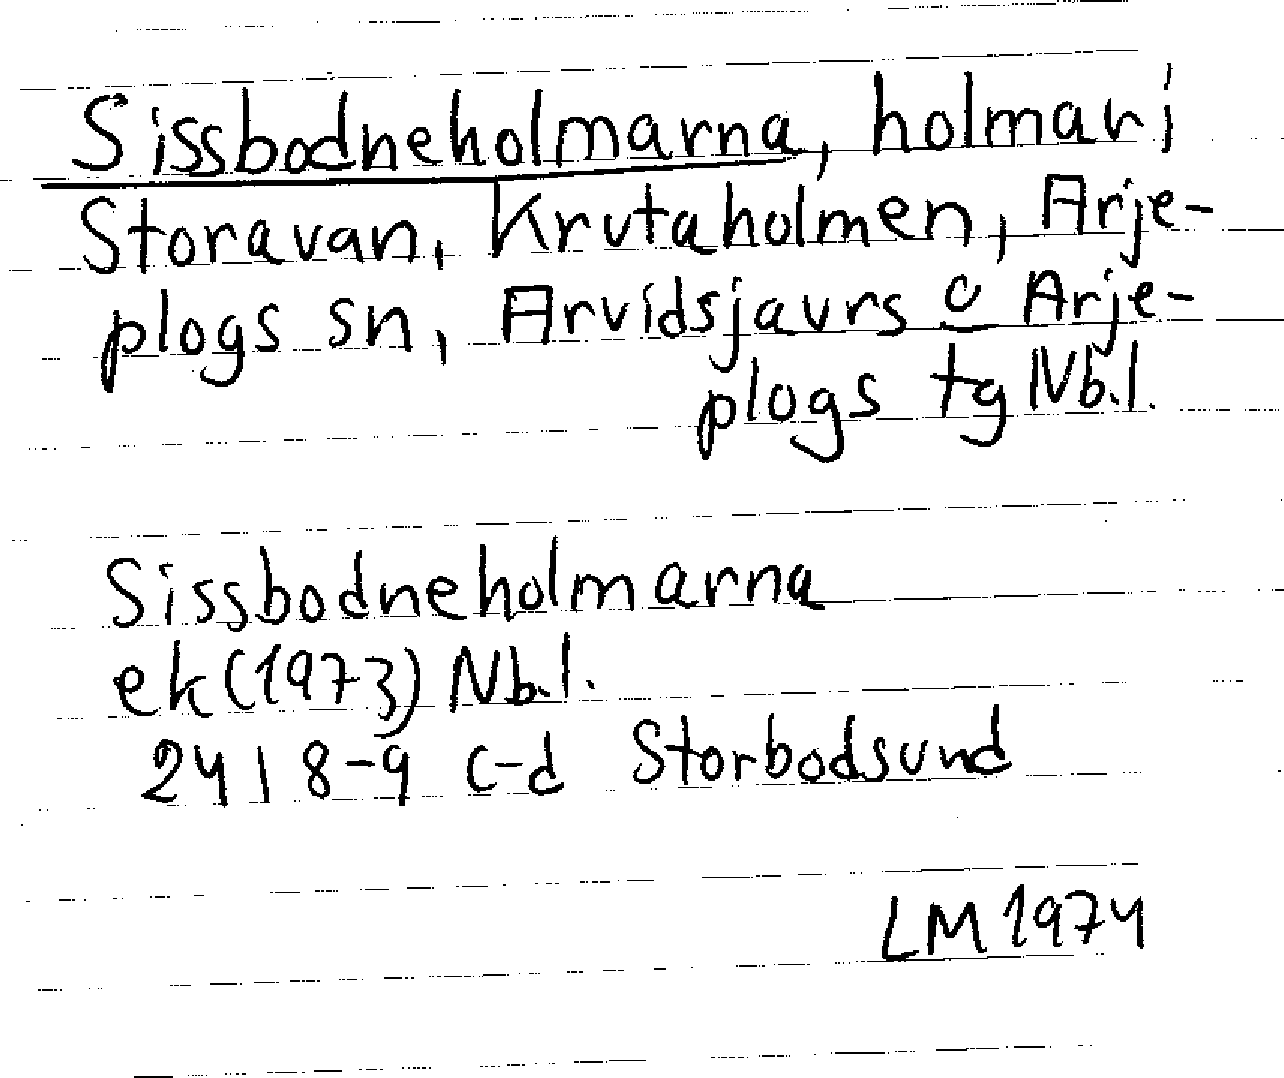 Sissbodneholmarna, holmar i
Storavan, Krutaholmen, Arje-
plogs sn, Arvidsjaurs o Arje-
plogs tg Nb.l.
Sissbodneholmarna
ek (1973) Nb.l.
24 I 8-9 c-d Storbodsund
LM 1974